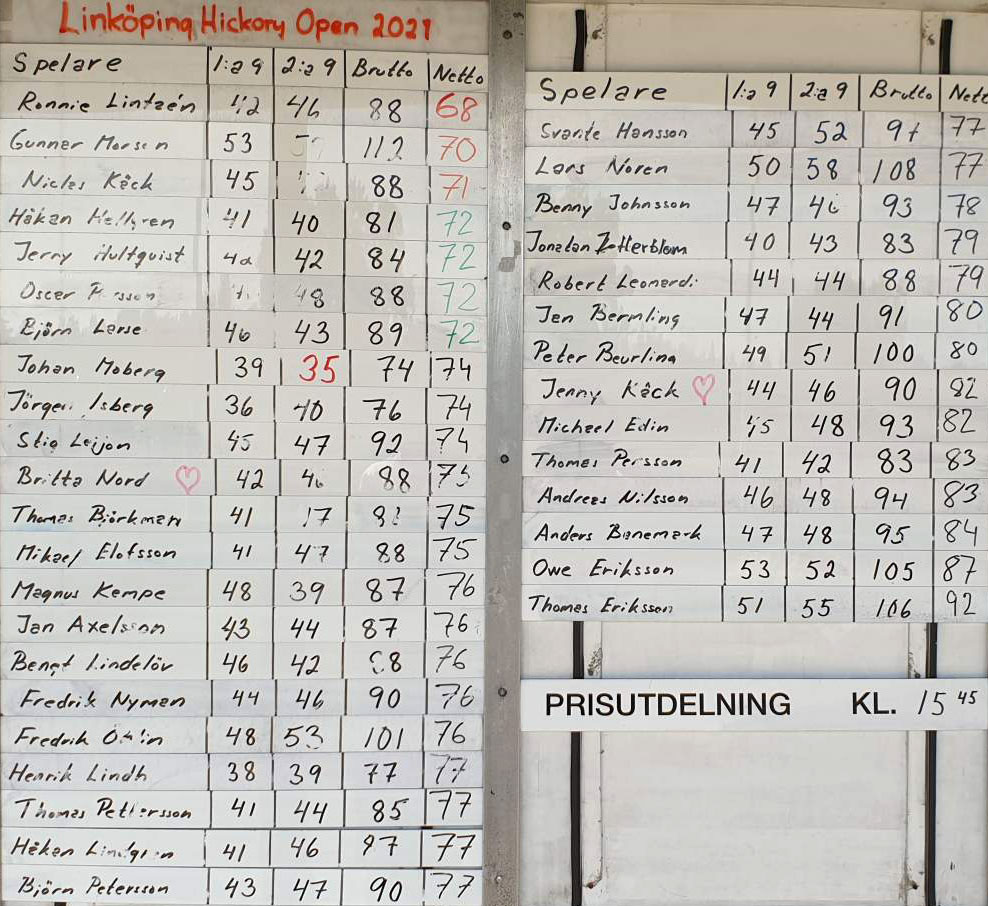 Linköping Hickory Open 2021
Spelare 1:a 9 2:a 9 Brutto Netto
Ronnie Lintzén 42 46 88 68
Gunnar 53 112 70
Niclas Käck 45 88 71
Håkan Hellgren 41 40 81 72
Jerry Hultquist 42 42 84 72
Oscar 48 88 72
Björn Larse 46 43 89 72
Johan Moberg 39 35 74 74
Jörgen Isberg 36 40 76 74
Stig Leijon 45 47 92 74
Britta Nord ♡ 42 88 75
Thomas Björkman 41 75
Mikael Elofsson 41 47 88 75
Magnus Kempe 48 39 87 76
Jan Axelsson 43 44 87 76
Bengt Lindelöv 46 42 88 76
Fredrik Nyman 44 46 90 76
Fredrik 48 53 101 76
Henrik Lindh 38 39 77 77
Thomas Pettersson 41 44 85 77
Håkan Lindgren 41 46 87 77
Björn Petersson 43 47 90 77
Spelare 1:a 9 2:a 9 Brutto Nett
Svante Hansson 45 52 97 77
Lars Noren 50 58 108 77
Benny Johnsson 47 46 93 78
Jonatan Zetterblom 40 43 83 79
Robert Leonardi 44 44 88 79
Jan Bermling 47 44 91 80
Peter Beurling 49 51 100 80
Jenny Käck ♡ 44 46 90 82
Michael Edin 45 48 93 82
Thomas Persson 41 42 83 83
Andreas Nilsson 46 48 94 83
Anders Banemark 47 48 95 84
Owe Eriksson 53 52 105 87
Thomas Eriksson 51 55 106 92
PRISUTDELNING KL. 15 45